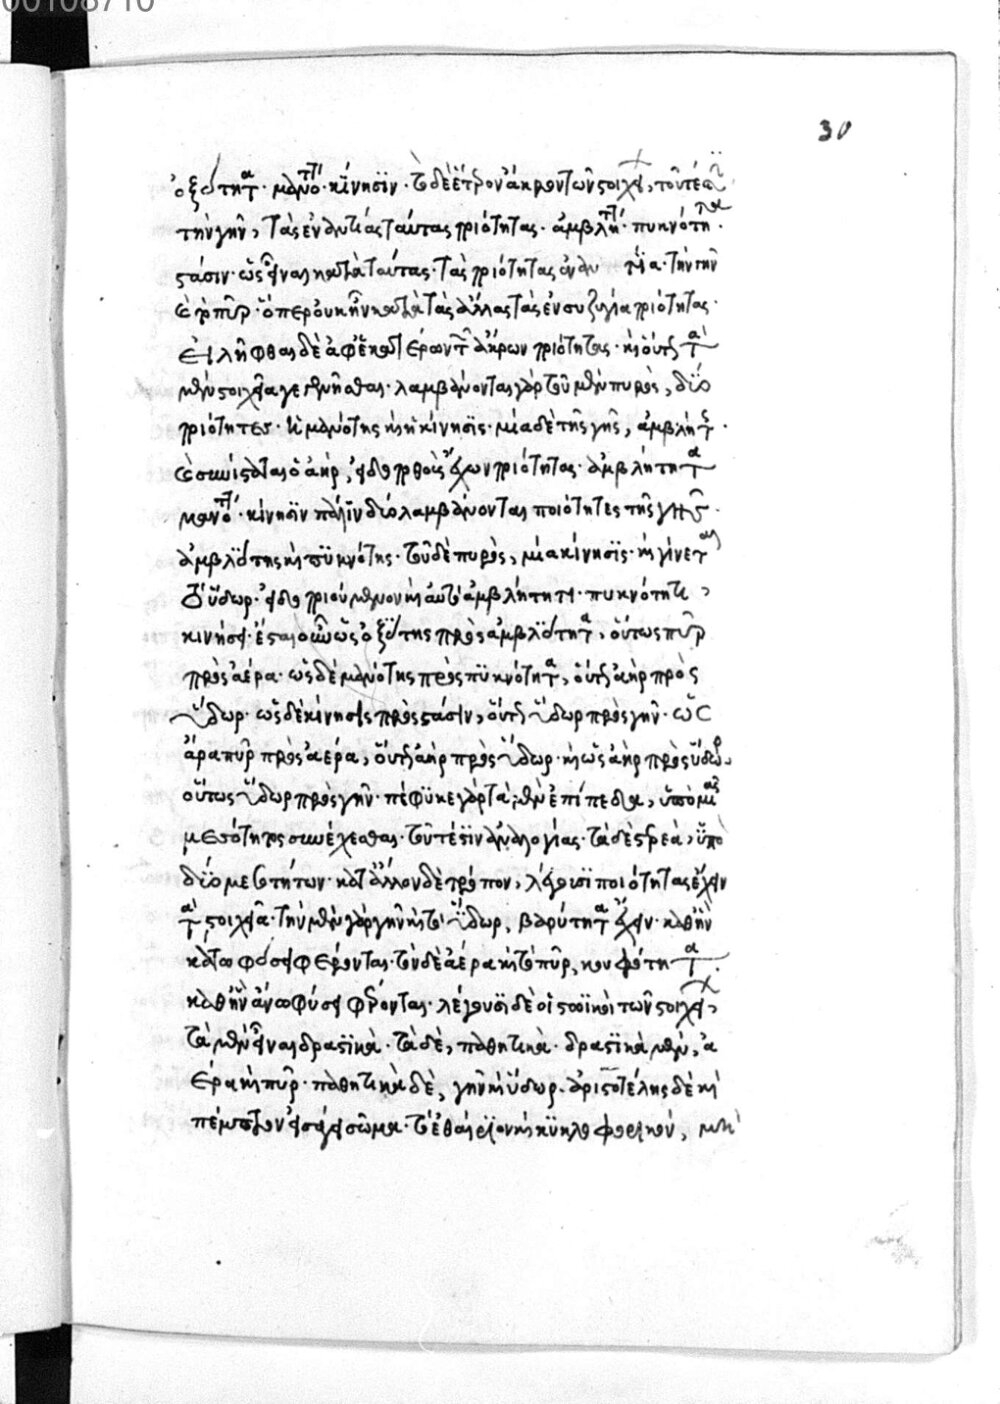 00108710
30
ὀξύτητα· μανότητι· κίνησϊν· τὸ δὲ ἕτερον ἄκρον τῶν στοιχείων, τουτέστι
τὴν γῆν, τὰς ἐναντίας ταύτας ποιότητας· ἀμβλύτητι· πυκνότητα·
στάσιν· ὡς εἶναι κατὰ ταύτας τὰς ποιότητας τὴν γῆν
πῦρ· ὅπερ οὐκ ἦν κατὰ τὰς ἄλλας τὰς ἐν συζυγία ποιότητας·
εἰλῆφθαι δὲ ἀφ' ἑκατέρων τῶν ἄκρων ποιότητας· καὶ οὕτω τὰ
στοιχεῖα γεννηθῆναι· λαμβάνονται γὰρ τοῦ μὲν πυρὸς, δύο
ποιότητες· ἡ μανότης καὶ ἡ κίνησϊς· μία δὲ τῆς γῆς, ἀμβλύτης·
συνίσταται ὁ ἀὴρ, ποιότητας· ἀμβλύτητα
μανότητι· κίνησϊν πάλϊν δύο λαμβάνονται ποιότητες τῆς γῆς·
ἀμβλύτης καὶ πϋκνότης· τοῦ δὲ πυρὸς, μία κίνησϊς· καὶ γίνεται
τὸ ὕδωρ· καὶ αὐτὸ ἀμβλύτητι· πυκνότητι,
κινήσει· ἔσται οὖν ὡς ὀξύτης πρὸς ἀμβλύτητα, οὕτως πῦρ
πρὸς ἀέρα· ὡς δὲ μανότης πρὸς πϋκνότητα, οὕτως ἀὴρ πρὸς
ὕδωρ· ὡς δὲ κίνησις πρὸς στάσιν, οὕτως ὕδωρ πρὸς γῆν· ὡς
ἄρα πῦρ πρὸς ἀέρα, οὕτως ἀὴρ πρὸς ὕδωρ· καὶ ὡς ἀὴρ πρὸς ὕδωρ,
οὕτως ὕδωρ πρὸς γῆν· πέφϋκε γὰρ τὰ μὲν ἐπίπεδα, ὑπὸ μιᾶς
μεσότητος συνέχεσθαι· τουτέστϊν ἀναλογίας· τὰ δὲ στερεὰ, ὑπὸ
δύο μεσοτήτων· κατ' ἄλλον δὲ τρόπον, λέγουσϊ ποιότητας ἔχειν
τὰ στοιχεῖα· τὴν μὲν γὰρ γῆν καὶ τὸ ὕδωρ, βαρύτητα ἔχειν· καθ' ἣν
κάτω φύσει φέρονται· τὸν δὲ ἀέρα καὶ τὸ πῦρ, κουφότητα·
καθ' ἣν ἄνω φύσει φέρονται· λέγουσϊ δὲ οἱ στωϊκοὶ τῶν στοιχείων,
τὰ μὲν εἶναι δραστϊκὰ· τὰ δὲ, παθητικὰ· δραστϊκὰ μὲν, ἀ
έρα καὶ πῦρ· παθητικὰ δὲ, γῆν καὶ ὕδωρ· ἀριστοτέλης δὲ καὶ
πέμπτον εἰσάγει σῶμα· τὸ αἰθέριον καὶ κϋκλοφορικὸν, μὴ